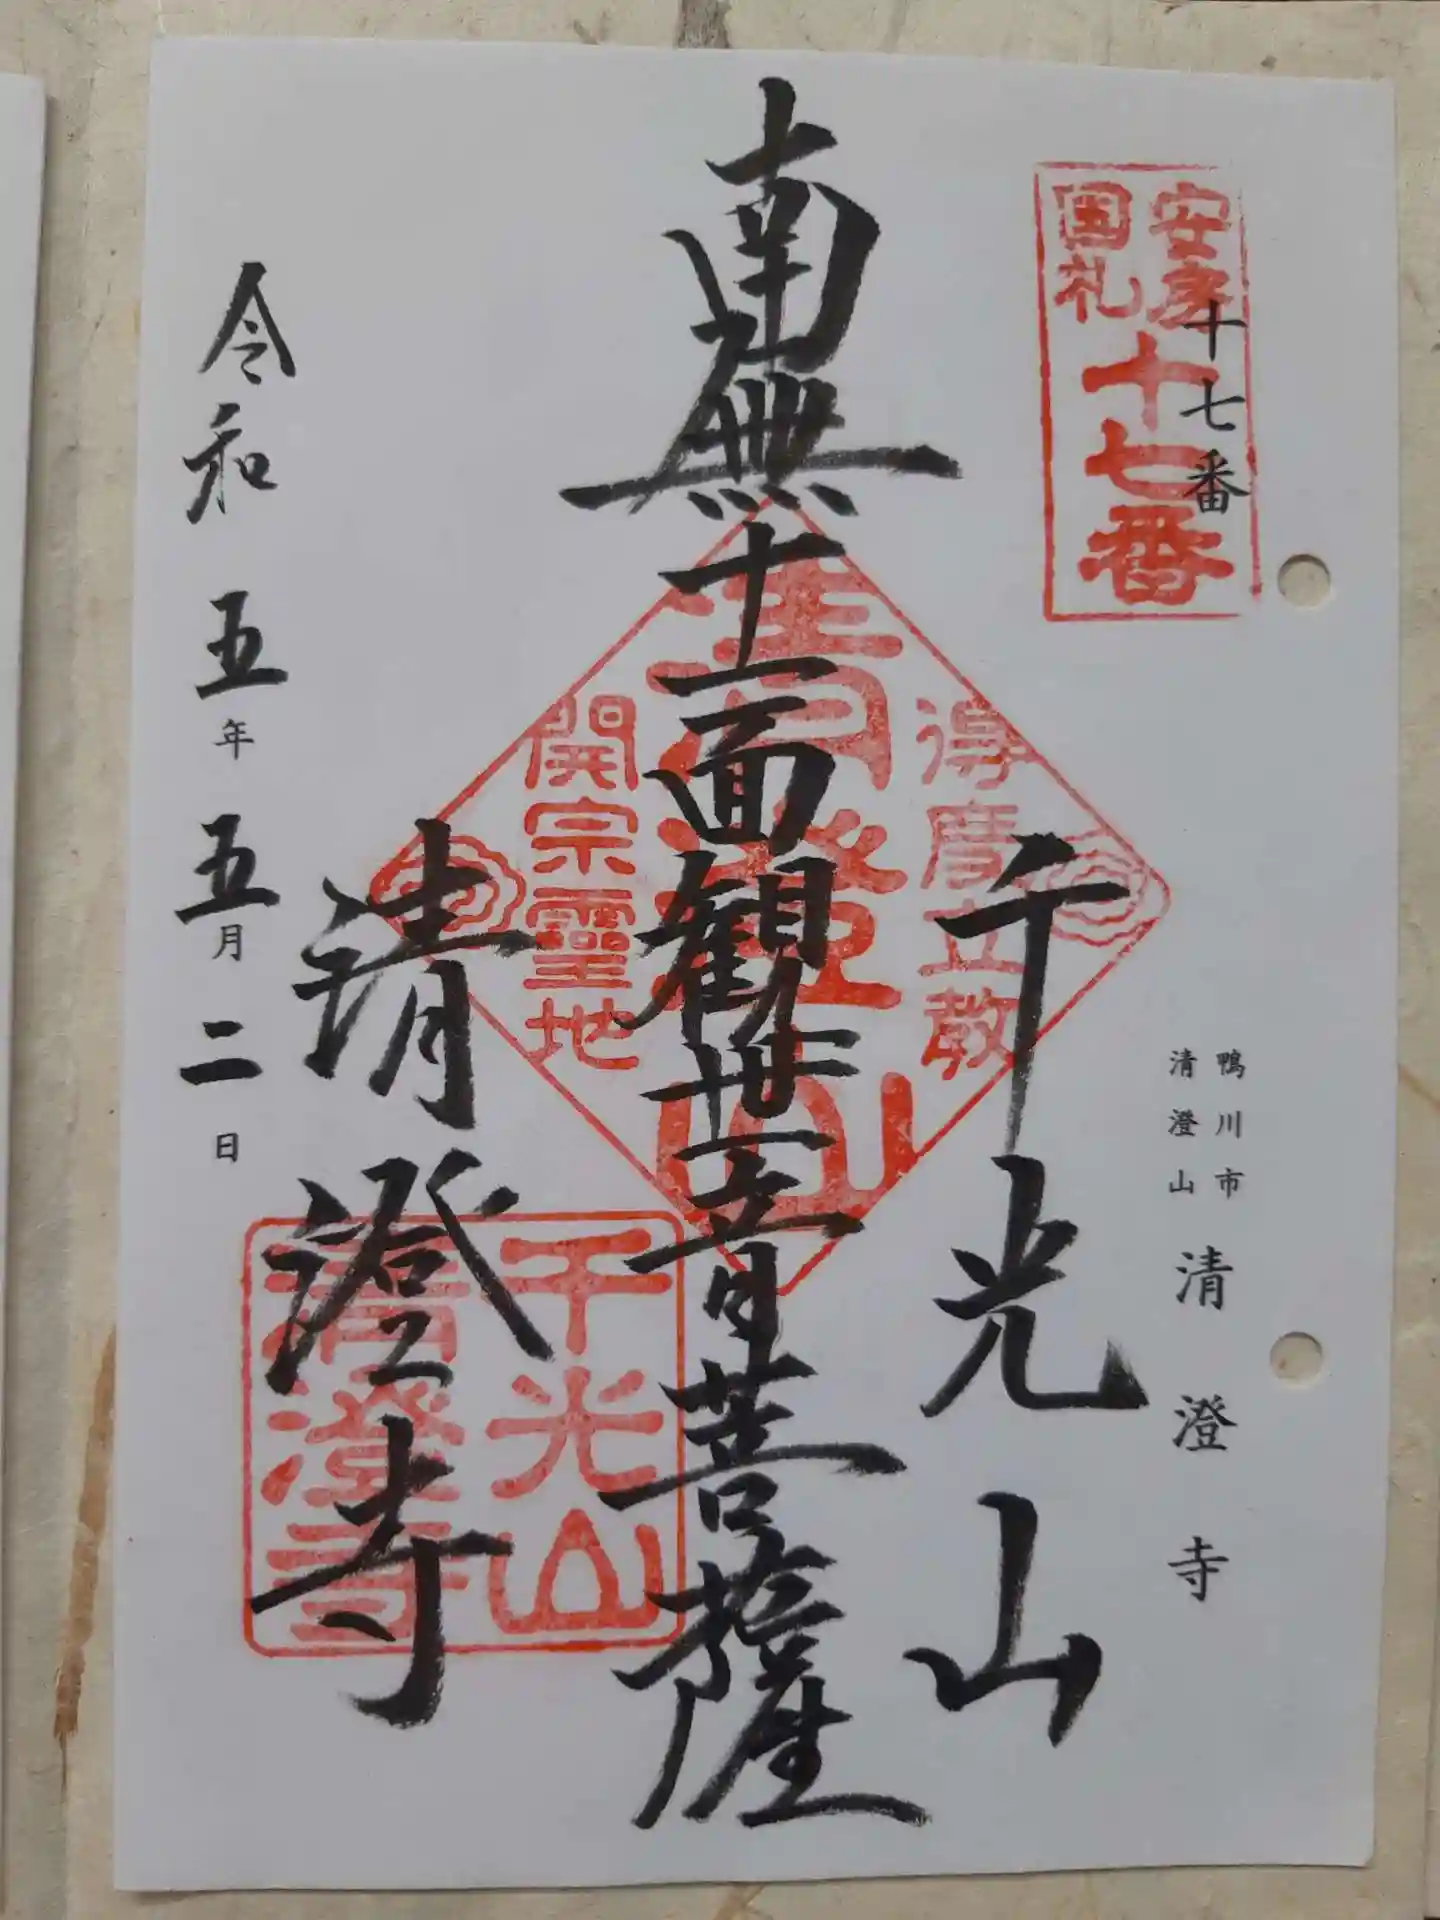 安房
国札
十七番
十七番
鴨川市
清澄山
清澄寺
千光山
南無十一面観世音菩薩
清澄寺
得度立教
清澄山
開宗霊地
千光山
清澄寺
令和五年五月二日